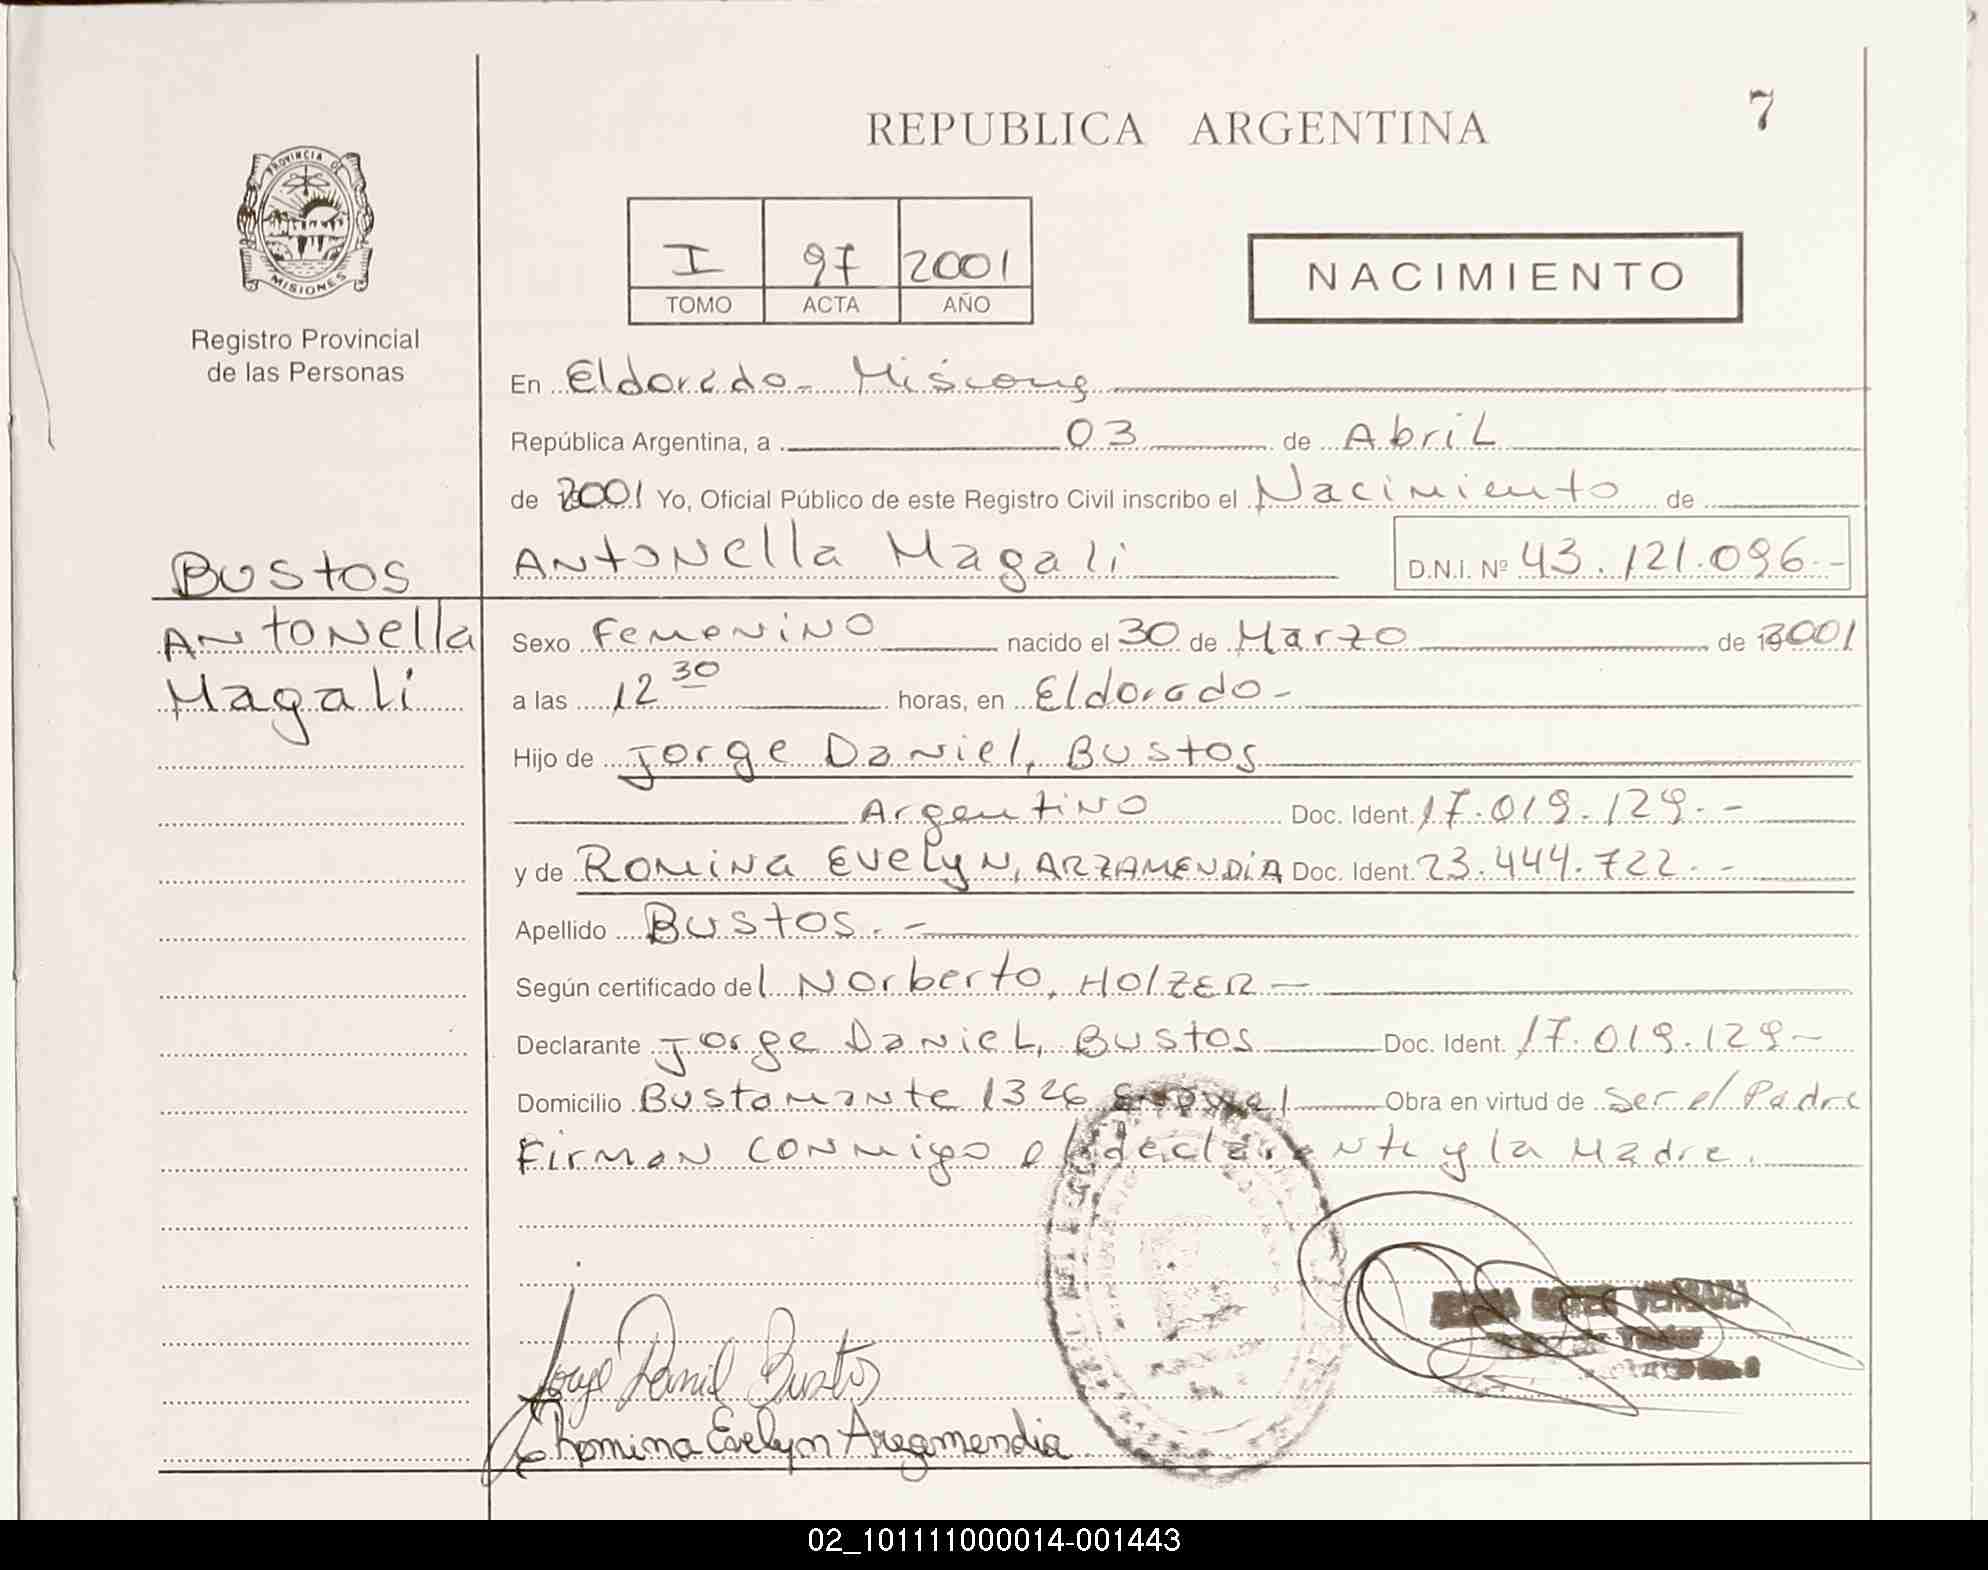 REPUBLICA ARGENTINA
7
PROVINCIA DE
MISIONES
Registro Provincial
de las Personas
I 97 2001
TOMO ACTA AÑO
NACIMIENTO
En Eldorado - Misiones
República Argentina, a 03 de Abril
de 2001 Yo, Oficial Público de este Registro Civil inscribo el Nacimiento de
Antonella Magali D.N.I. Nº 43.121.096.-
Bustos
Antonella
Magali
Sexo Femenino nacido el 30 de Marzo de 2001
a las 12 30 horas, en Eldorado -
Hijo de Jorge Daniel, Bustos
Argentino Doc. Ident. 17.019.129.-
y de Romina Evelyn, ARZAMENDIA Doc. Ident. 23.444.722.-
Apellido Bustos.-
Según certificado del Norberto, HOLZER -
Declarante Jorge Daniel, Bustos Doc. Ident. 17.019.129-
Domicilio Bustamante 1326 Obra en virtud de ser el Padre
Firman conmigo el declarante y la Madre.
Jorge Daniel Bustos
Rhomina Evelyn Arzamendia
02_101111000014-001443